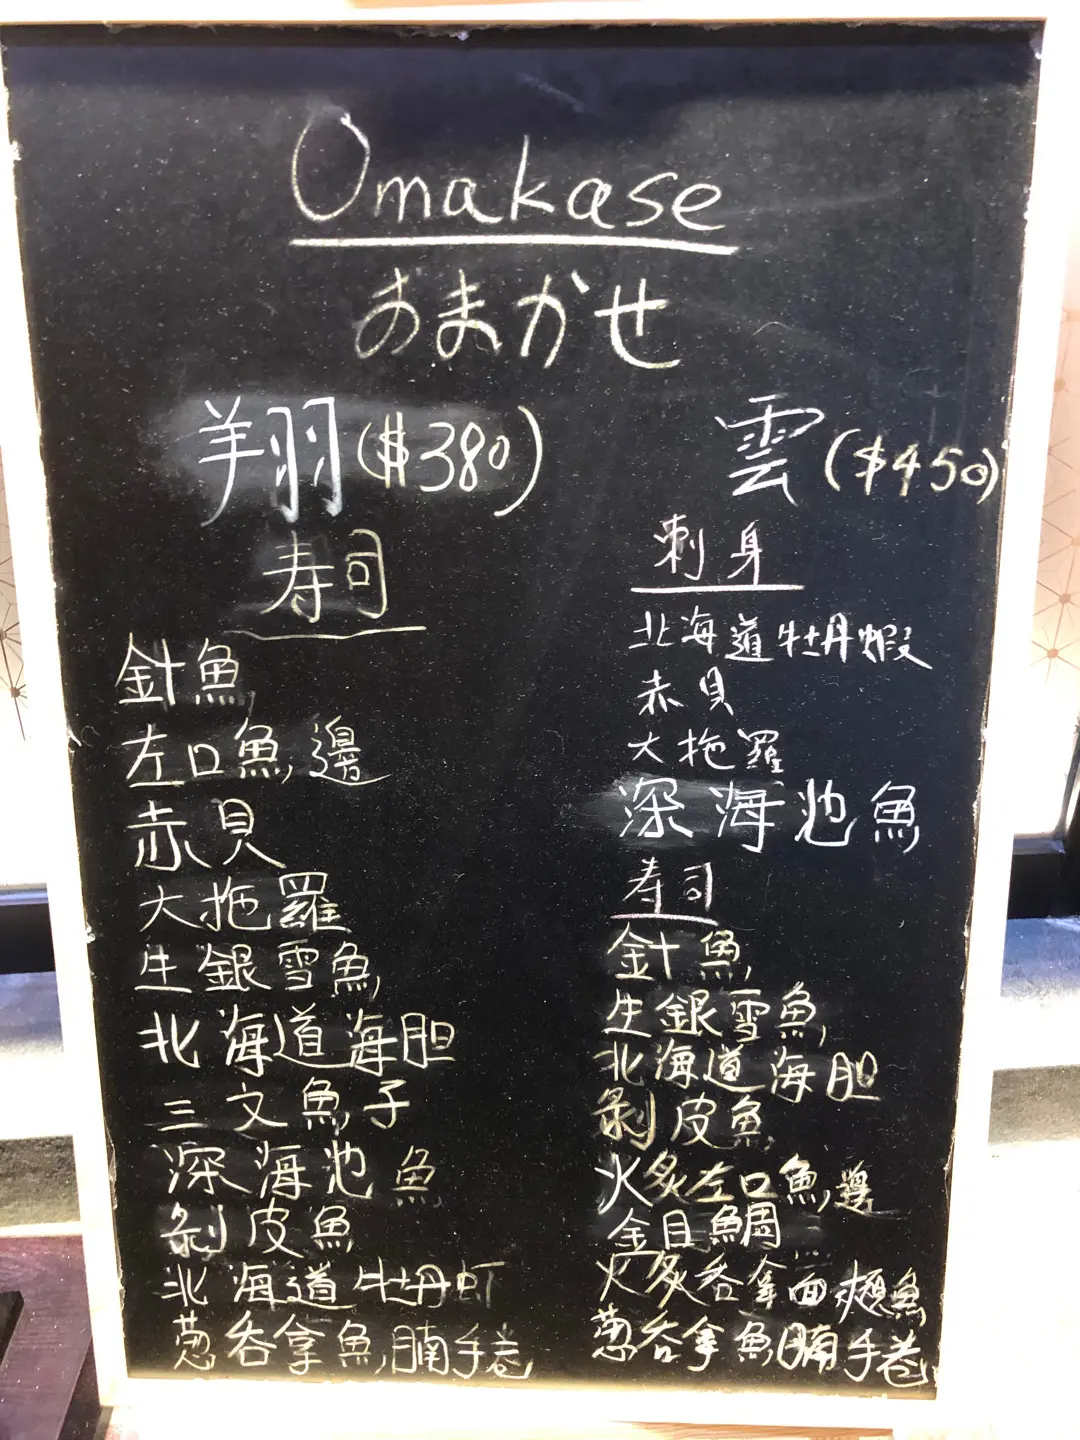 Omakase
おまかせ
翔($380)
寿司
針魚
左口魚邊
赤貝
大拖羅
生銀雪魚
北海道海胆
三文魚子
深海池魚
剝皮魚
北海道牡丹虾
葱吞拿魚腩手卷
雲($450)
刺身
北海道牡丹蝦
赤貝
大拖羅
深海池魚
寿司
針魚
生銀雪魚
北海道海胆
剝皮魚
火炙左口魚邊
金目鯛
火炙吞拿面頰魚
葱吞拿魚腩手卷